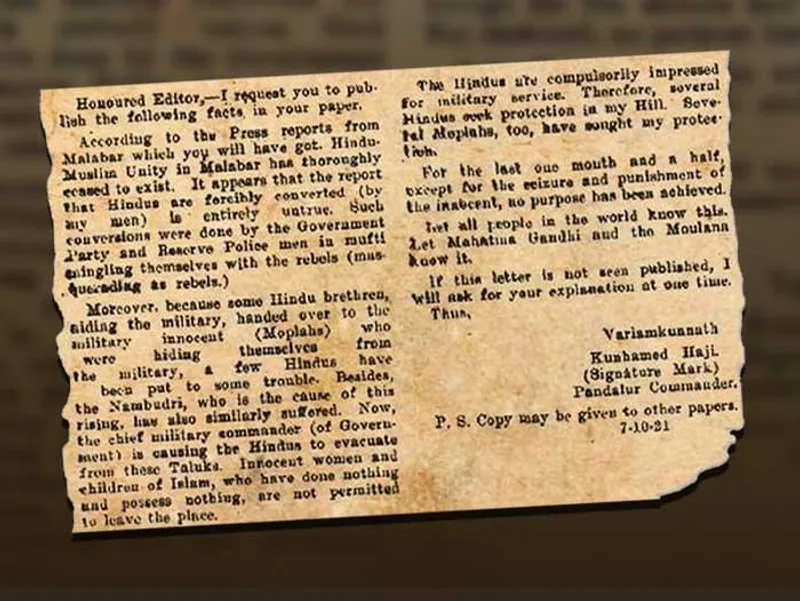 Honoured Editor,—I request you to pub-
lish the following facts in your paper.
According to the Press reports from
Malabar which you will have got. Hindu-
Muslim Unity in Malabar has thoroughly
ceased to exist. It appears that the report
that Hindus are forcibly converted (by
my men) is entirely untrue. Such
conversions were done by the Government
Party and Reserve Police men in mufti
mingling themselves with the rebels (mas-
querading as rebels.)
Moreover, because some Hindu brethren,
aiding the military, handed over to the
military innocent (Moplahs) who
were hiding themselves from
the military, a few Hindus have
been put to some trouble. Besides,
the Nambudri, who is the cause of this
rising, has also similarly suffered. Now,
the chief military commander (of Govern-
ment) is causing the Hindus to evacuate
from these Taluks. Innocent women and
children of Islam, who have done nothing
and possess nothing, are not permitted
to leave the place.
The Hindus are compulsorily impressed
for military service. Therefore, several
Hindus seek protection in my Hill. Seve-
ral Moplahs, too, have sought my protec-
tion.
For the last one mouth and a half,
except for the seizure and punishment of
the innocent, no purpose has been achieved.
Let all people in the world know this.
Let Mahatma Gandhi and the Moulana
know it.
If this letter is not seen published, I
will ask for your explanation at one time.
Thus,
Variamkunnath
Kunhamed Haji.
(Signature Mark)
Pandalur Commander.
P. S. Copy may be given to other papers.
7-10-21